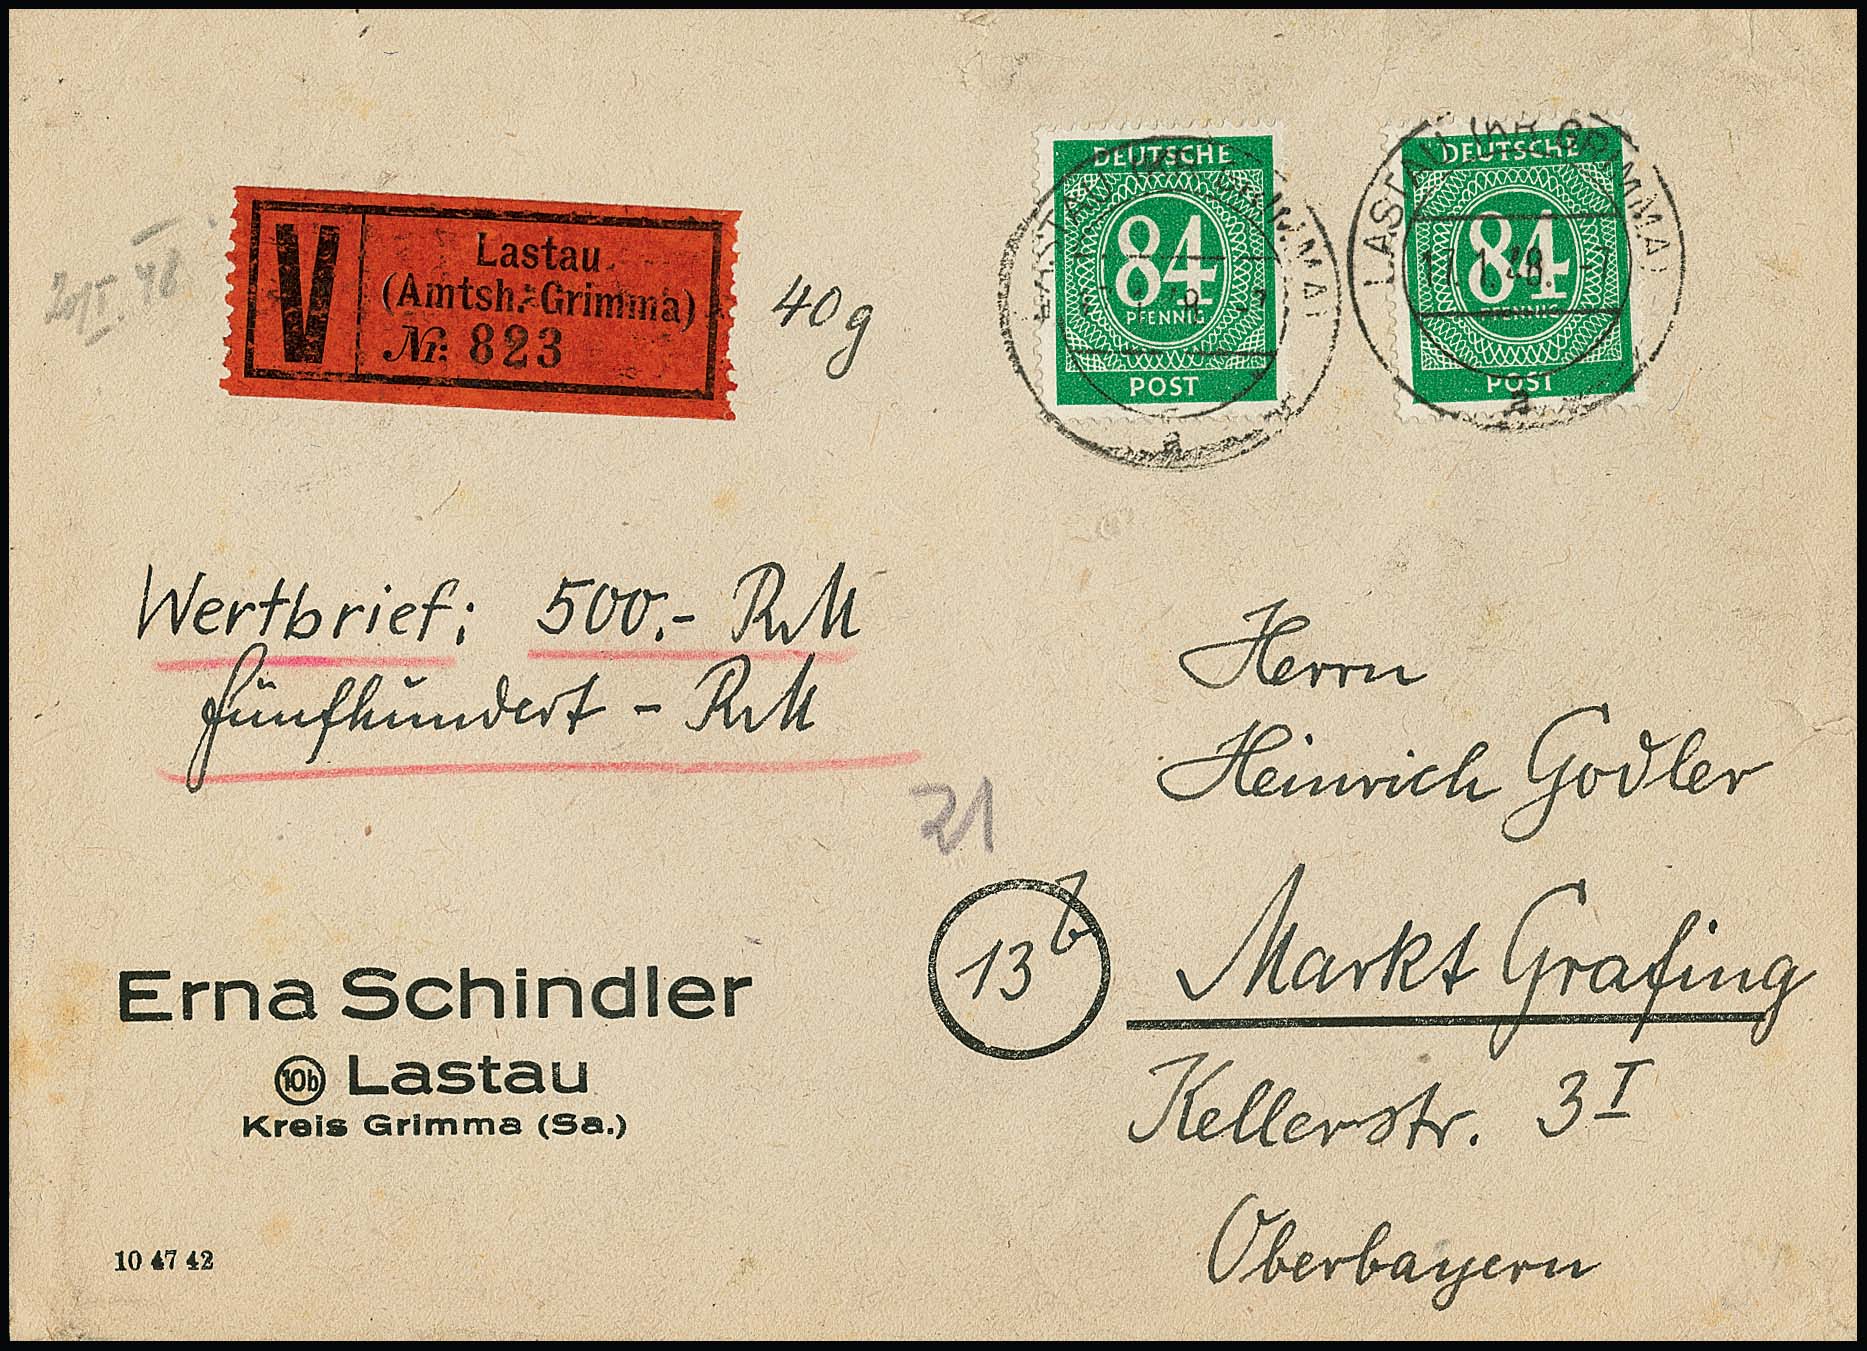 V
Lastau
(Amtsh. Grimma)
Nr. 823
40 g
DEUTSCHE
84
PFENNIG
POST
LASTAU (KR. GRIMMA)
a
DEUTSCHE
84
PFENNIG
POST
LASTAU (KR. GRIMMA)
17.1.48.-7
a
Wertbrief: 500.- RM
fünfhundert - RM
21
Herrn
Heinrich Godler
13b Markt Grafing
Kellerstr. 3 I
Oberbayern
Erna Schindler
10b Lastau
Kreis Grimma (Sa.)
10 47 42